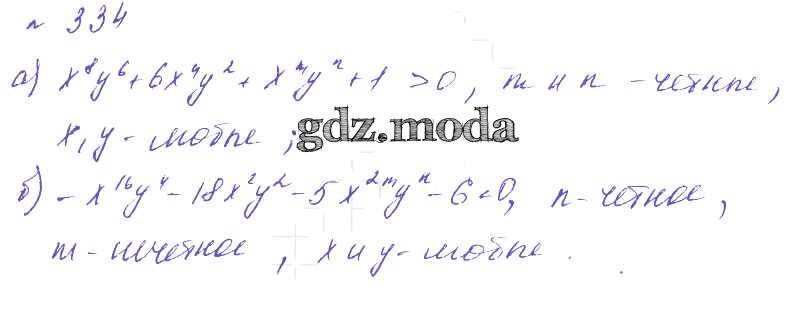 № 334
а) x⁸y⁶+6x⁴y²+x^m y^n+1 >0, m и n - четные,
x, y - любые ;
gdz.moda
б) -x¹⁶y⁴-18x²y²-5x^2m y^n-6<0, n-четное,
m-нечетное , x и y-любые .